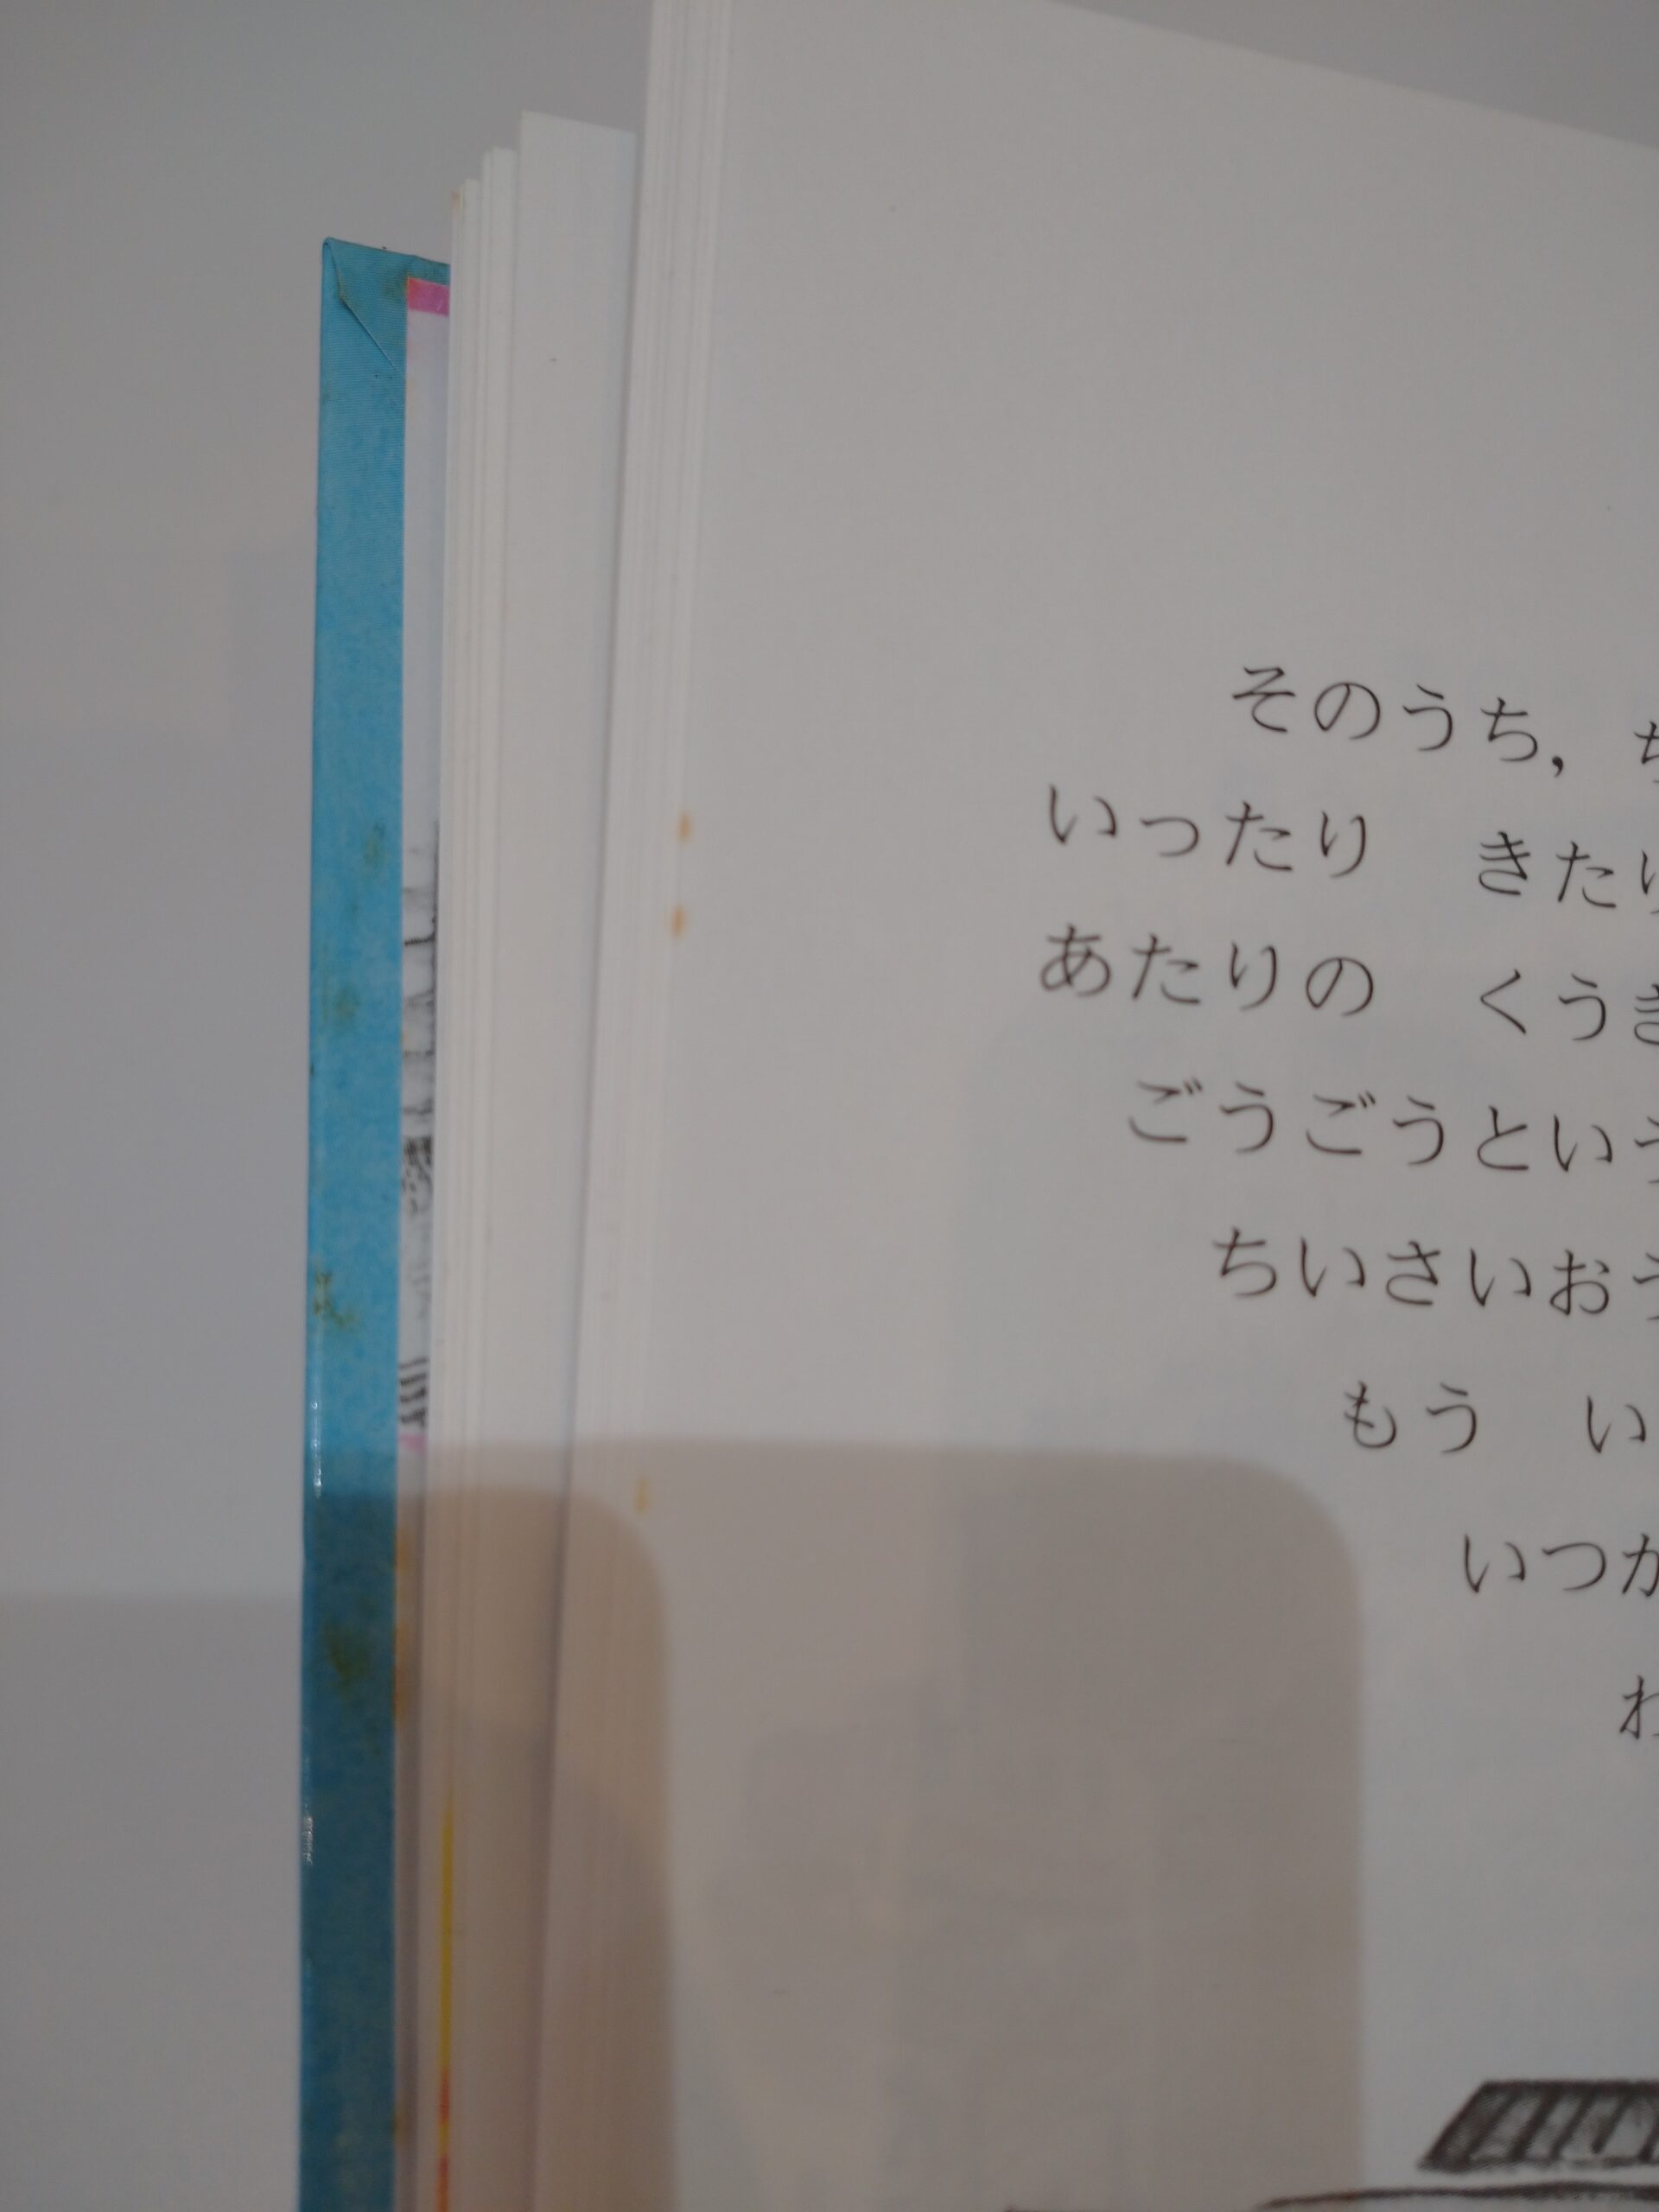 そのうち，
いったり　きたり
あたりの　くうき
ごうごうという
ちいさいおう
もう　い
いつか